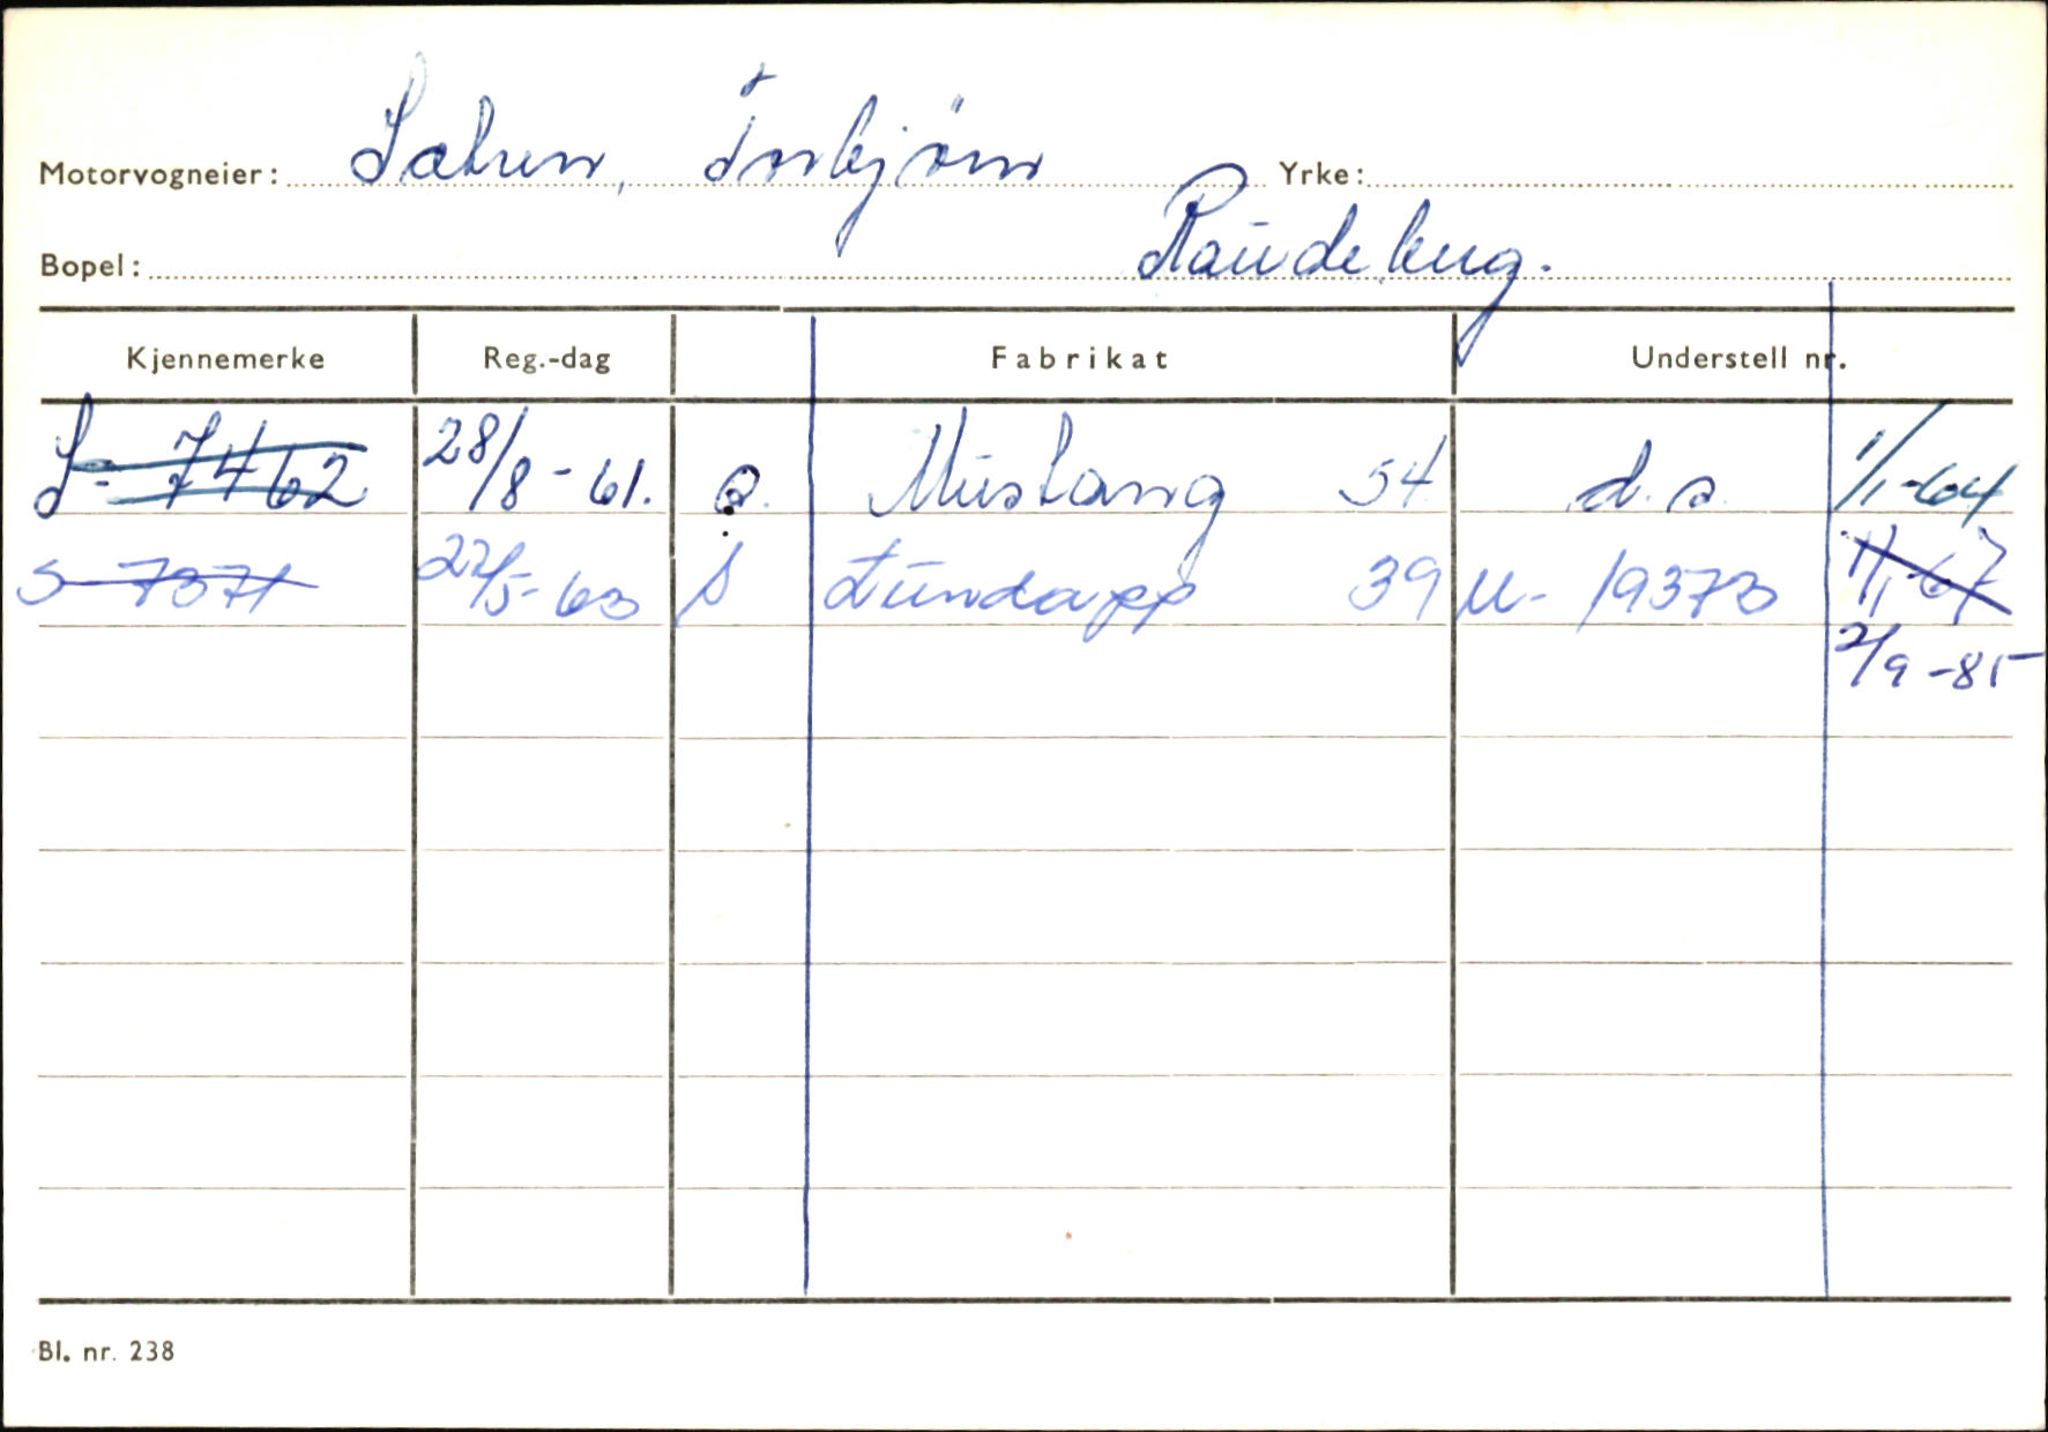 Motorvogneier: Sætren, Torbjørn Yrke:
Bopel: Raudeberg.
Kjennemerke Reg.-dag Fabrikat Understell nr.
S-7462 28/8-61. a. Mustang 54 d.s. 1/1-64
S-7371 22/5-63 s Zündapp 39 M- 19373 1/1-67
2/9-85
Bl. nr. 238